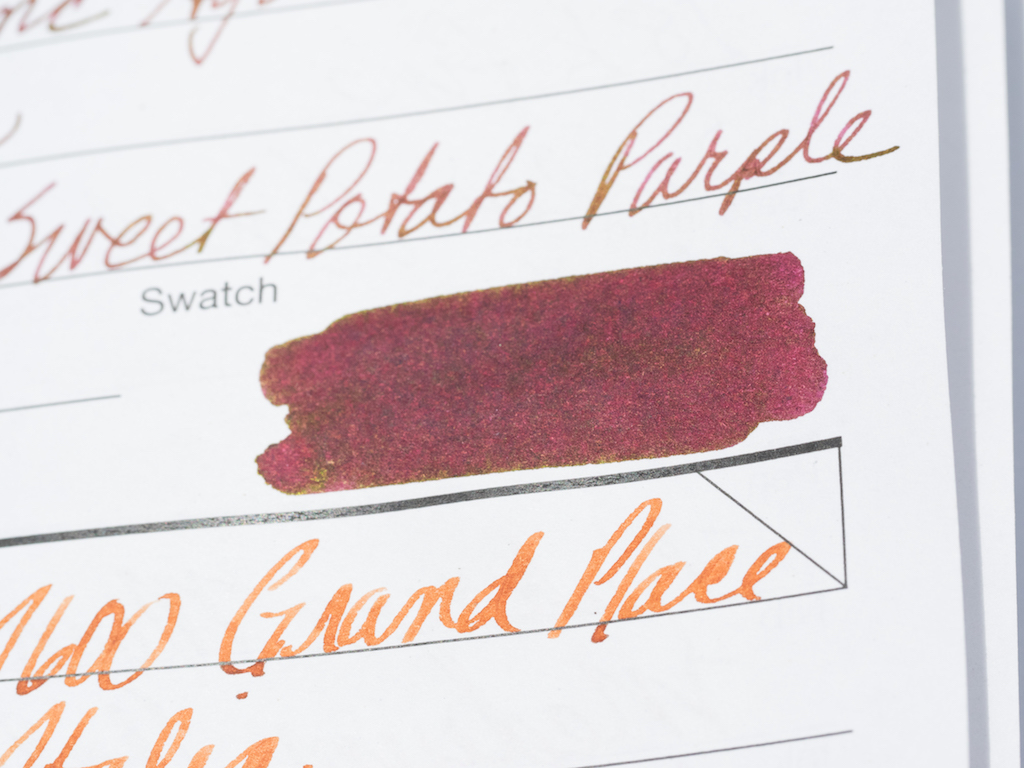 Sweet Potato Purple
Swatch
1600 Grand Place